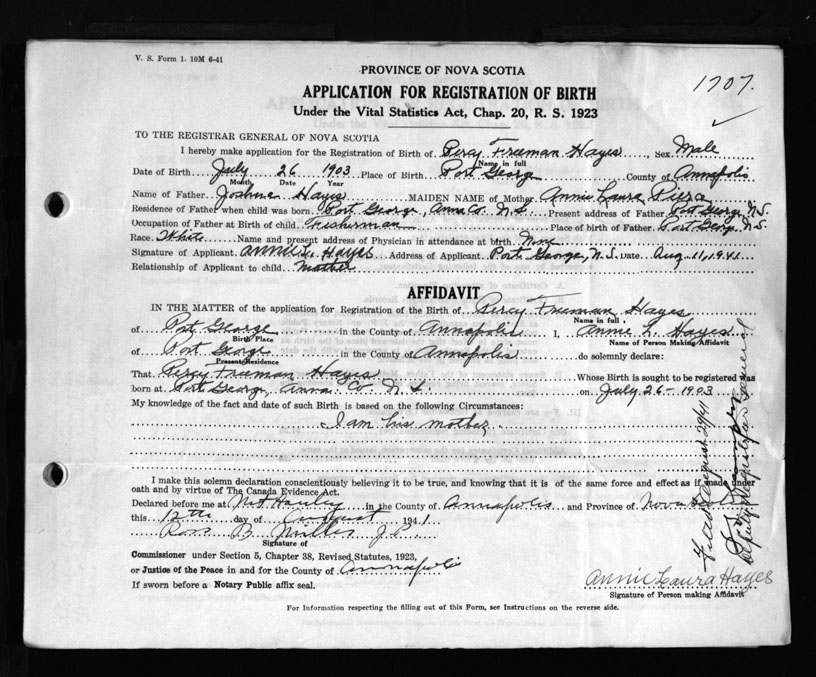 V. S. Form 1. 10M 6-41
PROVINCE OF NOVA SCOTIA
1707.
APPLICATION FOR REGISTRATION OF BIRTH
Under the Vital Statistics Act, Chap. 20, R. S. 1923
TO THE REGISTRAR GENERAL OF NOVA SCOTIA
I hereby make application for the Registration of Birth of Percy Freeman Hayes, Sex Male
Name in full
Date of Birth July 26 1903 Place of Birth Port George County of Annapolis
Month Date Year
Name of Father Joshua Hayes MAIDEN NAME of Mother Annie Laura
Residence of Father when child was born Port George, Anna Co. N.S. Present address of Father Port George N.S.
Occupation of Father at Birth of child Fisherman Place of birth of Father Port George, N.S.
Race White Name and present address of Physician in attendance at birth None
Signature of Applicant Annie L. Hayes Address of Applicant Port George, N.S. Date Aug 11, 1941
Relationship of Applicant to child Mother
AFFIDAVIT
IN THE MATTER of the application for Registration of the Birth of Percy Freeman Hayes
Name in full
of Port George in the County of Annapolis I, Annie L. Hayes
Birth Place Name of Person Making Affidavit
of Port George in the County of Annapolis do solemnly declare:
Present Residence
That Percy Freeman Hayes Whose Birth is sought to be registered was
born at Port George, Anna. Co. N.S. on July 26-1903
My knowledge of the fact and date of such Birth is based on the following Circumstances:
I am his mother.
I make this solemn declaration conscientiously believing it to be true, and knowing that it is of the same force and effect as if made under
oath and by virtue of The Canada Evidence Act.
Declared before me at Mt Hanley in the County of Annapolis and Province of Nova Scotia
this 12th day of August 1941
Ross B. Miller J.P.
Signature of
Commissioner under Section 5, Chapter 38, Revised Statutes, 1923,
or Justice of the Peace in and for the County of Annapolis
If sworn before a Notary Public affix seal.
Annie Laura Hayes
Signature of Person making Affidavit
For Information respecting the filling out of this Form, see Instructions on the reverse side.
Filed August 29/41
Deputy Registrar General